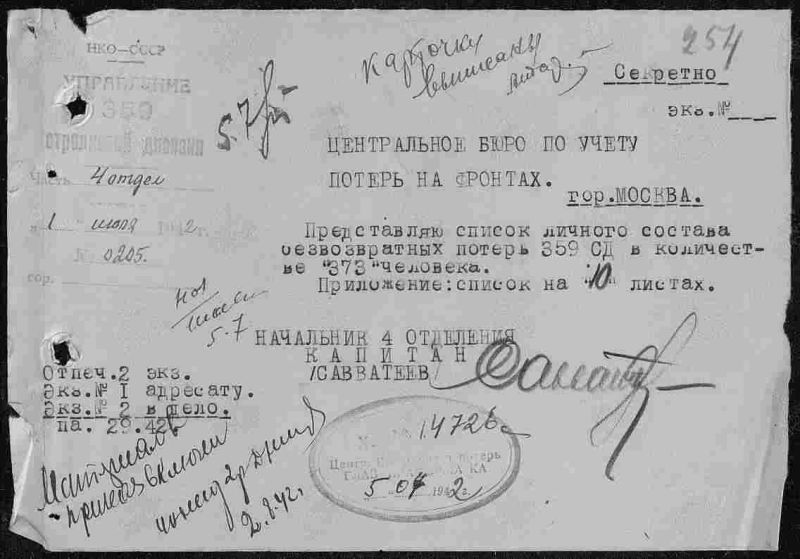 НКО–СССР
УПРАВЛЕНИЕ
359
стрелковой дивизии
Часть 4 отдел
"1" июля 1942 г.
№ 0205.
гор.
5.7
карточки
выписаны
254
Секретно
экз.№
ЦЕНТРАЛЬНОЕ БЮРО ПО УЧЕТУ
ПОТЕРЬ НА ФРОНТАХ.
гор.МОСКВА.
Представляю список личного состава
безвозвратных потерь 359 СД в количест-
ве "373"человека.
Приложение:список на "10" листах.
5.7
НАЧАЛЬНИК 4 ОТДЕЛЕНИЯ
КАПИТАН
/САВВАТЕЕВ/
Отпеч.2 экз.
Экз.№ I адресату.
Экз.№ 2 в дело.
па. 29.42г
Х. № 14726с
Центр. Бюро потерь
5 07 1942г.
Материал
2.8.42г.